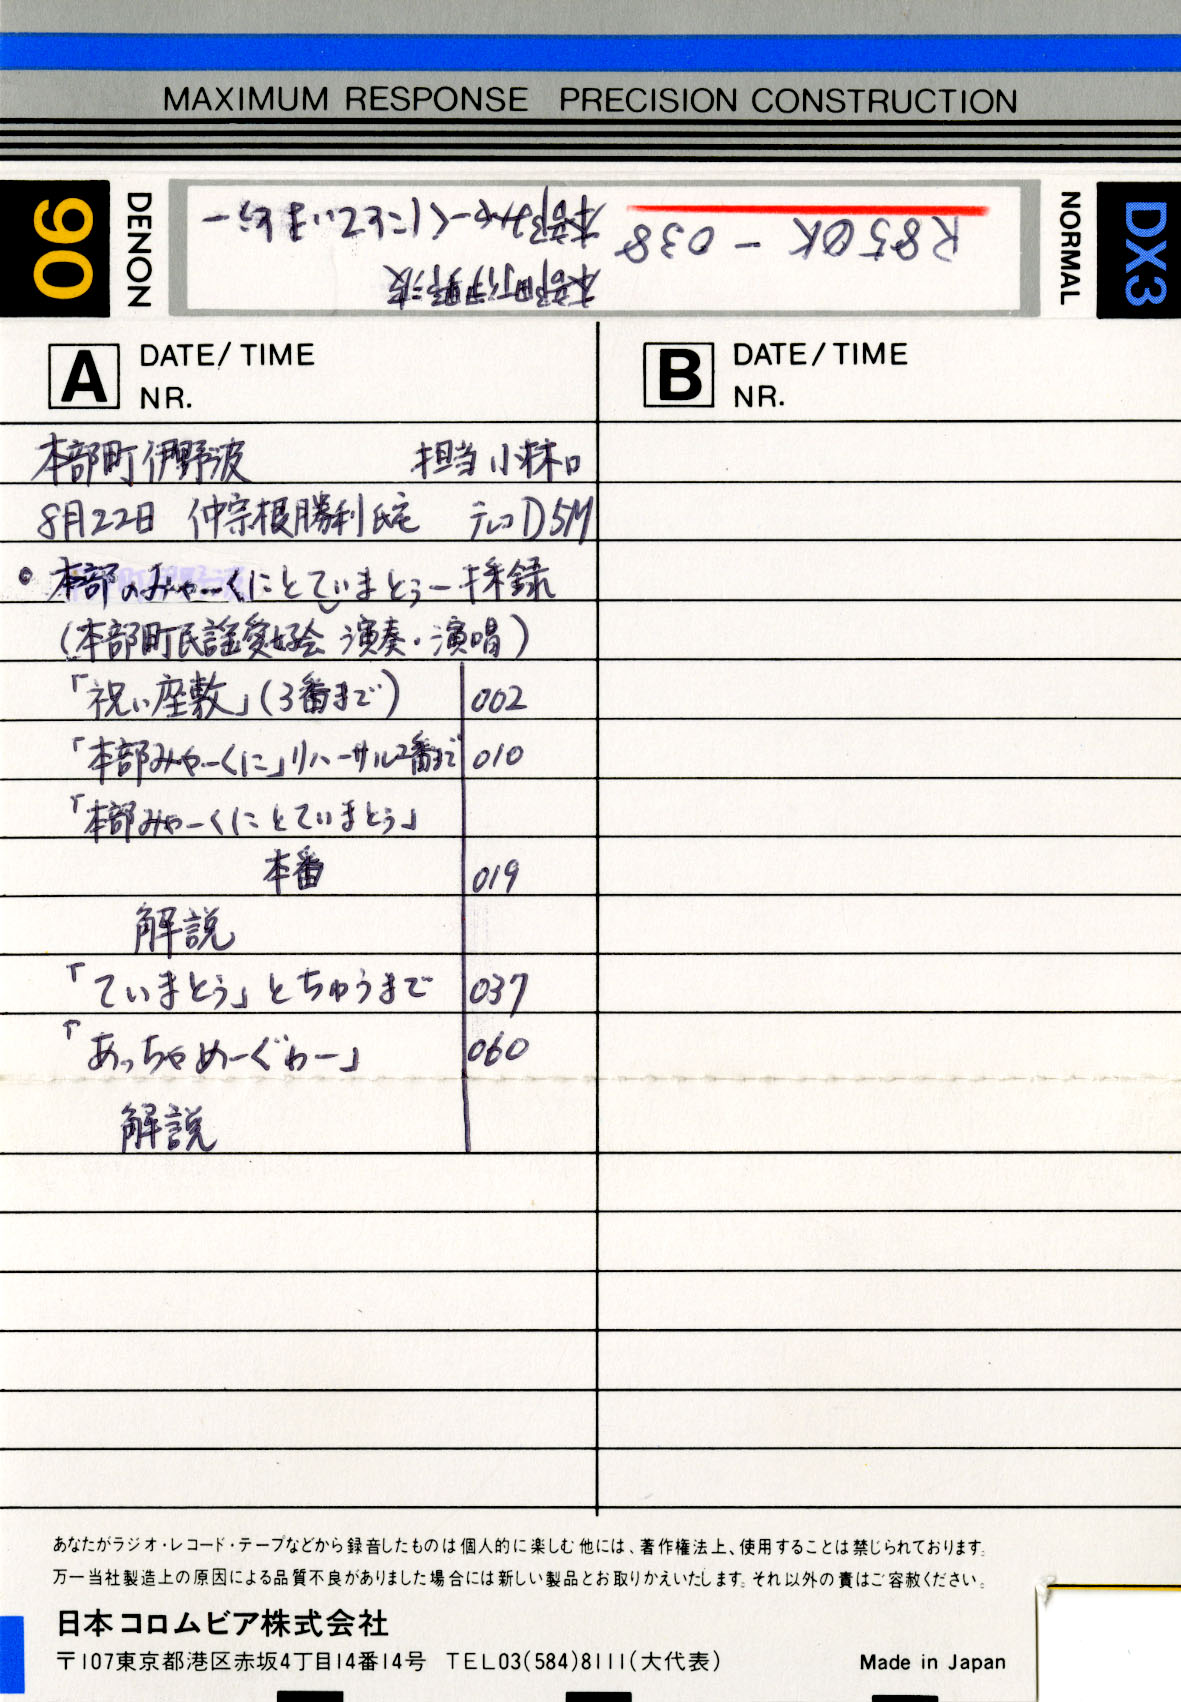 MAXIMUM RESPONSE PRECISION CONSTRUCTION
90
DENON
R850K-038
本部町伊野波
本部みゃーくにとていまとぅー
NORMAL
DX3
A DATE/TIME
NR.
B DATE/TIME
NR.
本部町伊野波 担当 小林口
8月22日 仲宗根勝利氏宅 テレコD5M
本部のみゃーくにとていまとぅー採録
(本部町民謡愛好会 演奏・演唱)
「祝い座敷」(3番まで) 002
「本部みゃーくに」リハーサル2番まで 010
「本部みゃーくにとていまとぅ」
本番 019
解説
「ていまとぅ」とちゅうまで 037
「あっちゃめーぐゎー」 060
解説
あなたがラジオ・レコード・テープなどから録音したものは個人的に楽しむ他には、著作権法上、使用することは禁じられております。
万一当社製造上の原因による品質不良がありました場合には新しい製品とお取りかえいたします。それ以外の責はご容赦ください。
日本コロムビア株式会社
〒107東京都港区赤坂4丁目14番14号 TEL03(584)8111(大代表)
Made in Japan